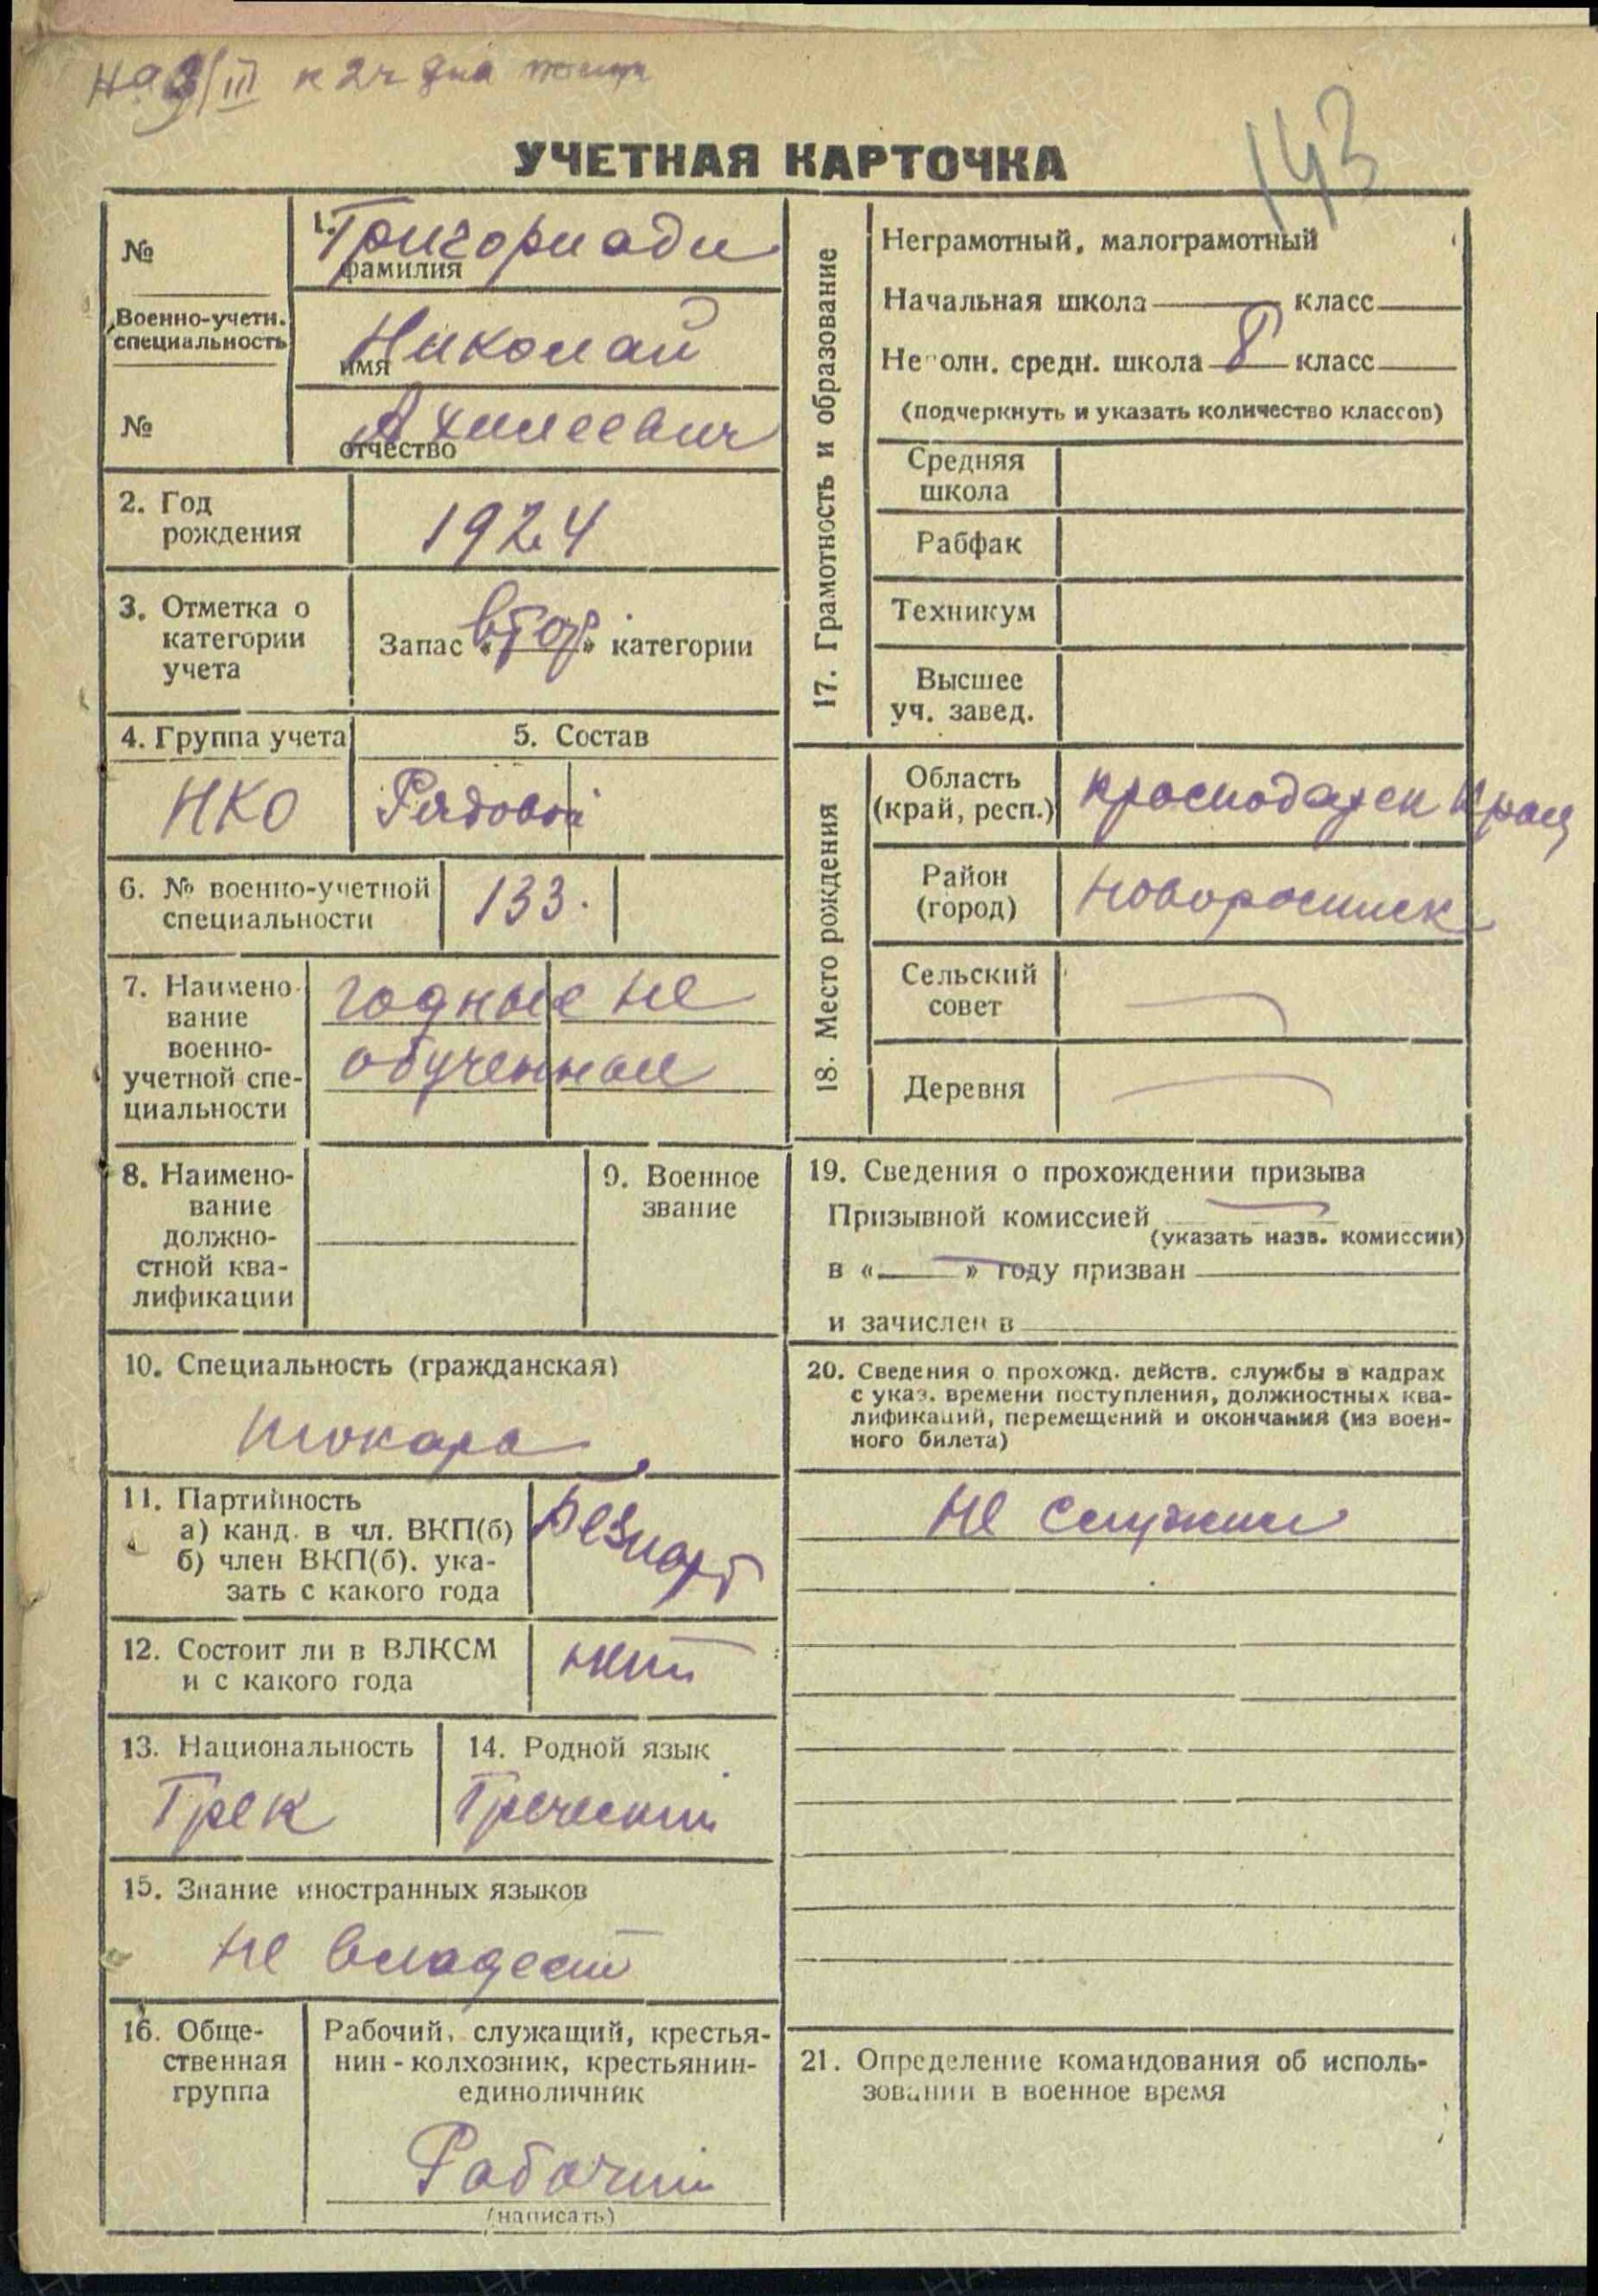 На 3/III к 2ч дня
143
УЧЕТНАЯ КАРТОЧКА
№
Военно-учетн.
специальность
№
1. Григориади
фамилия
Николай
имя
Ахилеевич
отчество
2. Год
рождения
1924
3. Отметка о
категории
учета
Запас «втор» категории
4. Группа учета
НКО
5. Состав
Рядовой
6. № военно-учетной
специальности
133.
7. Наимено-
вание
военно-
учетной спе-
циальности
годные не
обученные
8. Наимено-
вание
должно-
стной ква-
лификации
9. Военное
звание
10. Специальность (гражданская)
токарь
11. Партийность
а) канд. в чл. ВКП(б)
б) член ВКП(б). ука-
зать с какого года
Безпарт
12. Состоит ли в ВЛКСМ
и с какого года
нет
13. Национальность
Грек
14. Родной язык
Греческий
15. Знание иностранных языков
не владеет
16. Обще-
ственная
группа
Рабочий, служащий, крестья-
нин - колхозник, крестьянин-
единоличник
Рабочий
(написать)
17. Грамотность и образование
Неграмотный, малограмотный
Начальная школа класс
Неполн. средн. школа 8 класс
(подчеркнуть и указать количество классов)
Средняя
школа
Рабфак
Техникум
Высшее
уч. завед.
18. Место рождения
Область
(край, респ.)
Краснодарск край
Район
(город)
Новоросийск
Сельский
совет
Деревня
19. Сведения о прохождении призыва
Призывной комиссией
(указать назв. комиссии)
в « » году призван
и зачислен в
20. Сведения о прохожд. действ. службы в кадрах
с указ. времени поступления, должностных ква-
лификаций, перемещений и окончания (из воен-
ного билета)
Не служил
21. Определение командования об исполь-
зовании в военное время